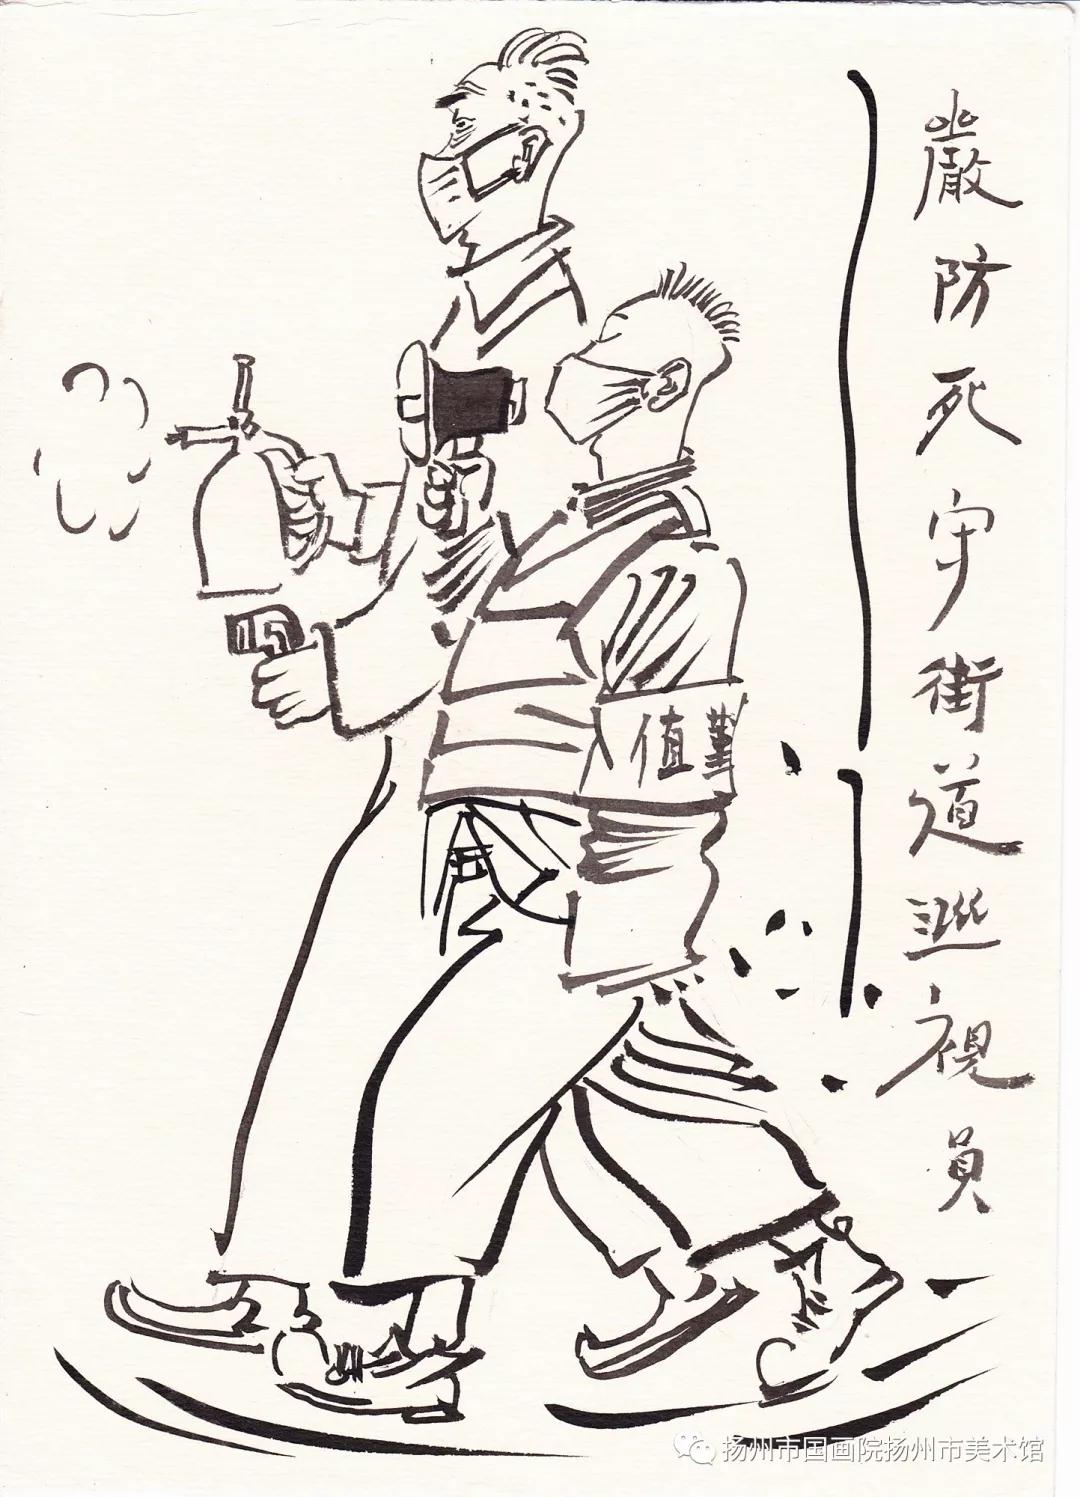 嚴防死守街道巡視員
值勤
扬州市国画院扬州市美术馆